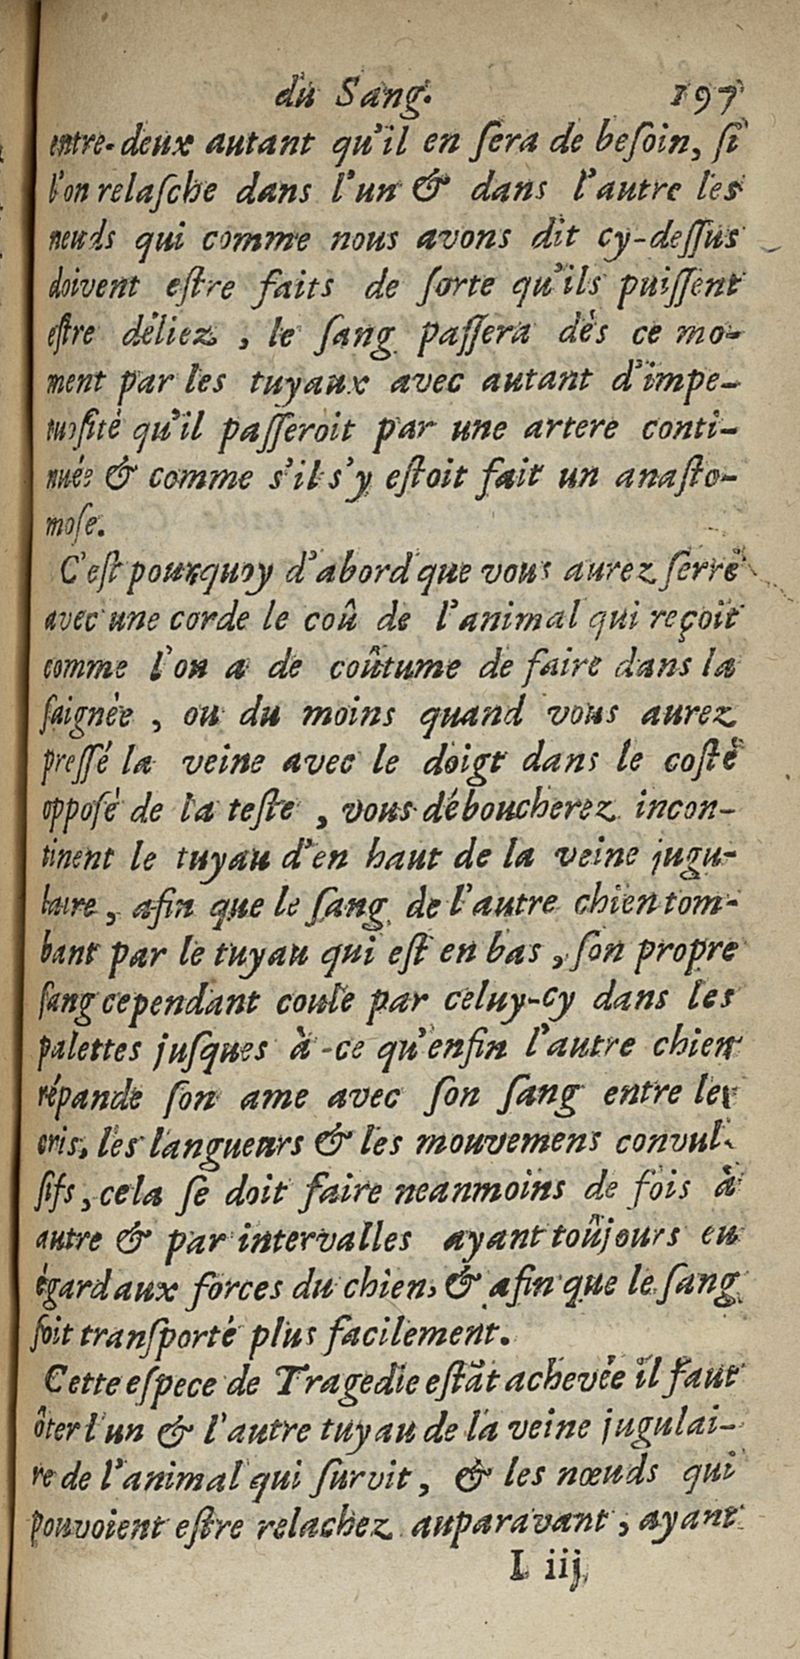 du Sang. 197
entre-deux autant qu'il en ſera de beſoin, ſi
l'on relaſche dans l'un & dans l'autre les
neuds qui comme nous avons dit cy-deſſus
doivent eſtre faits de ſorte qu'ils puiſſent
eſtre déliez, le ſang paſſera dès ce mo-
ment par les tuyaux avec autant d'impe-
tuoſité qu'il paſſeroit par une artere conti-
nuée & comme s'il s'y eſtoit fait un anaſto-
moſe.
C'eſt pourquoy d'abord que vous aurez ſerré
avec une corde le coû de l'animal qui reçoit
comme l'on a de coûtume de faire dans la
ſaignée, ou du moins quand vous aurez
preſſé la veine avec le doigt dans le coſté
oppoſé de la teſte, vous déboucherez incon-
tinent le tuyau d'en haut de la veine jugu-
laire, afin que le ſang de l'autre chien tom-
bant par le tuyau qui eſt en bas, ſon propre
ſang cependant coule par celuy-cy dans les
palettes juſques à-ce qu'enfin l'autre chien
répande ſon ame avec ſon ſang entre les
cris, les langueurs & les mouvemens convul-
ſifs, cela ſe doit faire neanmoins de fois à
autre & par intervalles ayant toûjours eu
égard aux forces du chien, & afin que le ſang
ſoit tranſporté plus facilement.
Cette eſpece de Tragedie eſtãt achevée il faut
ôter l'un & l'autre tuyau de la veine jugulai-
re de l'animal qui ſurvit, & les nœuds qui
pouvoient eſtre relachez auparavant, ayant
I iij